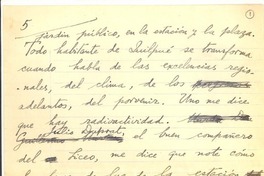 5
1
jardín público, en la estación y la plaza.
Todo habitante de Quilpué se transforma
cuando habla de las excelencias regio-
nales, del clima, de los
adelantos, del porvenir. Uno me dice
que hay radioactividad.
el buen compañero
del Liceo, me dice que note cómo
de la estación